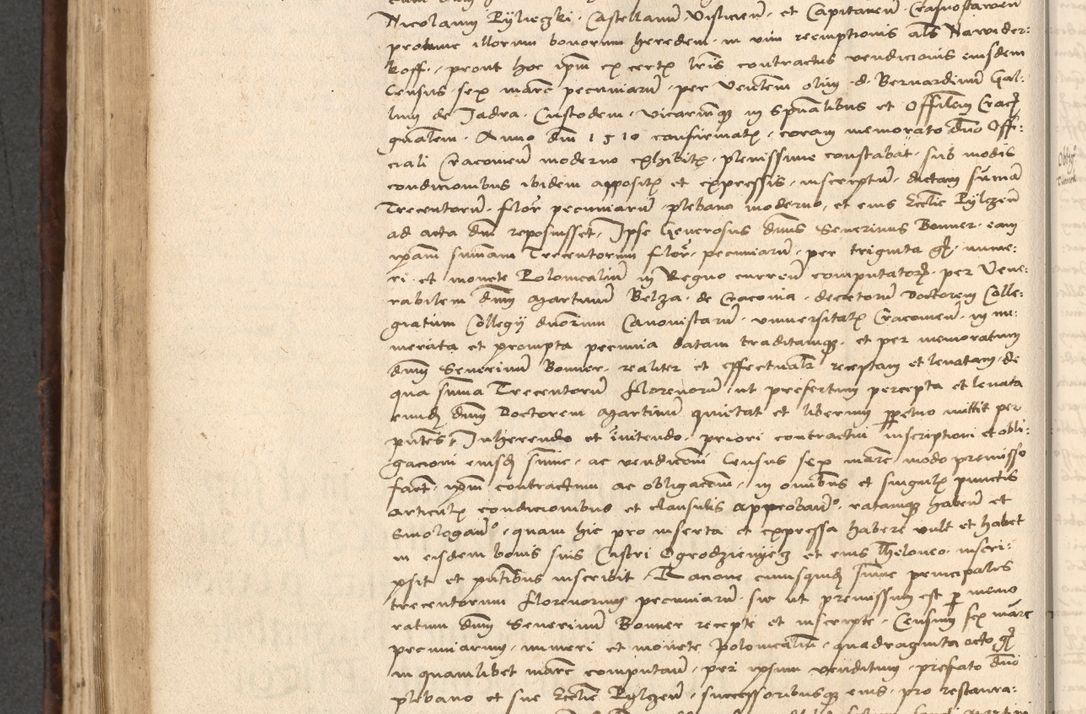 Nicolaum Rylieczki Castellanum Visliciens et Capitaneum Crasnostaviens
proxime illorum bonorum heredem in vim reemptionis als Nawider
koff prout hoc ipsum ex certx lris contractus vendicionis eiusdem
Census sex marc pecuniaru per Venlem olim d Bernardinu Gal
lum de Jadra Custodem Vicariumq in Spualibus et Offilem Crac
gnalem Anno dni 1510 confirmatx coram memorato dno Offi
ciali Cracovien moderno exhibitx plenissime constabat sub modis
condicionibus ibidem appositx et expressis inscriptu dictam sumam
Trecentoru flor pecuniaru plebano moderno et eius Ecclie Rylzen
ad acta dni reposuisset Ipse Generosus dnus Severinus Bonner eam
ipsam sumam Trecentorum flor pecuniaru per triginta gr nume
ri et monete Polonicaliu in Regno curren computatoru per Vene
rabilem dnm Martinu Belza de Cracovia decretoru Doctorem Colle
giatum Collegij duorum Canonistaru universitatx Cracovien in nu
merata et prompta pecunia datam traditamq et per memoratum
dnm Severinu Bonner realiter et effectualr receptam et levatam de
qua suma Trecentoru florenoru ut prefertur percepta et levata
eundem dnm Doctorem Martinu quietat et liberum perpetuo mittit per
pntes Inherendo et innitendo priori contractui inscriptioni et obli
gacioni eiusd sume ac vendicioni Census sex marc modo premisso
fact ipsum contractum ac obligacionem in omibus et singulx punctis
articulx condicionibus et clausulis approband ratamq habens et
Emologans quam hic pro inserta et expressa habere vult et habet
in eisdem bonis suis Castri Ogrodzienyecz et eius theloneo inscri
psit et pntibus inscribit Racione cuiusquid sume principales
trecentorum florenorum pecuniaru sic ut premissum est per memo
ratum dnm Severinu Bonner recepte et inscripte Censum sex marc
pecuniarum numeri et monete Polonicalis quadraginta octo gr
in quamlibet marc computan per ipsum venditum prefato dno
plebano et sue Ecclie Rylzen successoribusq eius pro restaura